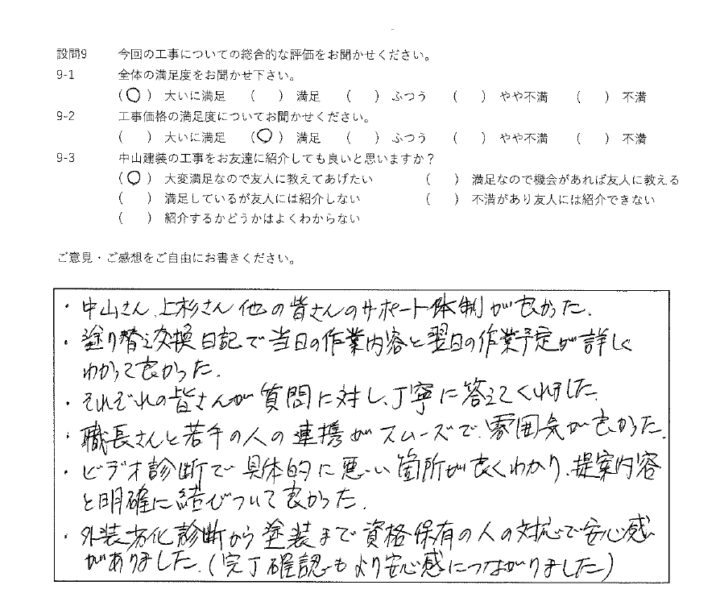 設問9 今回の工事についての総合的な評価をお聞かせください。
9-1 全体の満足度をお聞かせ下さい。
(○) 大いに満足 ( ) 満足 ( ) ふつう ( ) やや不満 ( ) 不満
9-2 工事価格の満足度についてお聞かせください。
( ) 大いに満足 (○) 満足 ( ) ふつう ( ) やや不満 ( ) 不満
9-3 中山建装の工事をお友達に紹介しても良いと思いますか？
(○) 大変満足なので友人に教えてあげたい ( ) 満足なので機会があれば友人に教える
( ) 満足しているが友人には紹介しない ( ) 不満があり友人には紹介できない
( ) 紹介するかどうかはよくわからない
ご意見・ご感想をご自由にお書きください。
・中山さん、上杉さん他の皆さんのサポート体制が良かった。
・塗り替え交換日記で当日の作業内容と翌日の作業予定が詳しく
わかって良かった。
・それぞれの皆さんが質問に対し、丁寧に答えてくれました。
・職長さんと若手の人の連携がスムーズで、雰囲気が良かった。
・ビデオ診断で具体的に悪い箇所が良くわかり、提案内容
と明確に結びついて良かった。
・外装劣化診断から塗装まで資格保有の人の対応で安心感
がありました。(完了確認もより安心感につながりました)